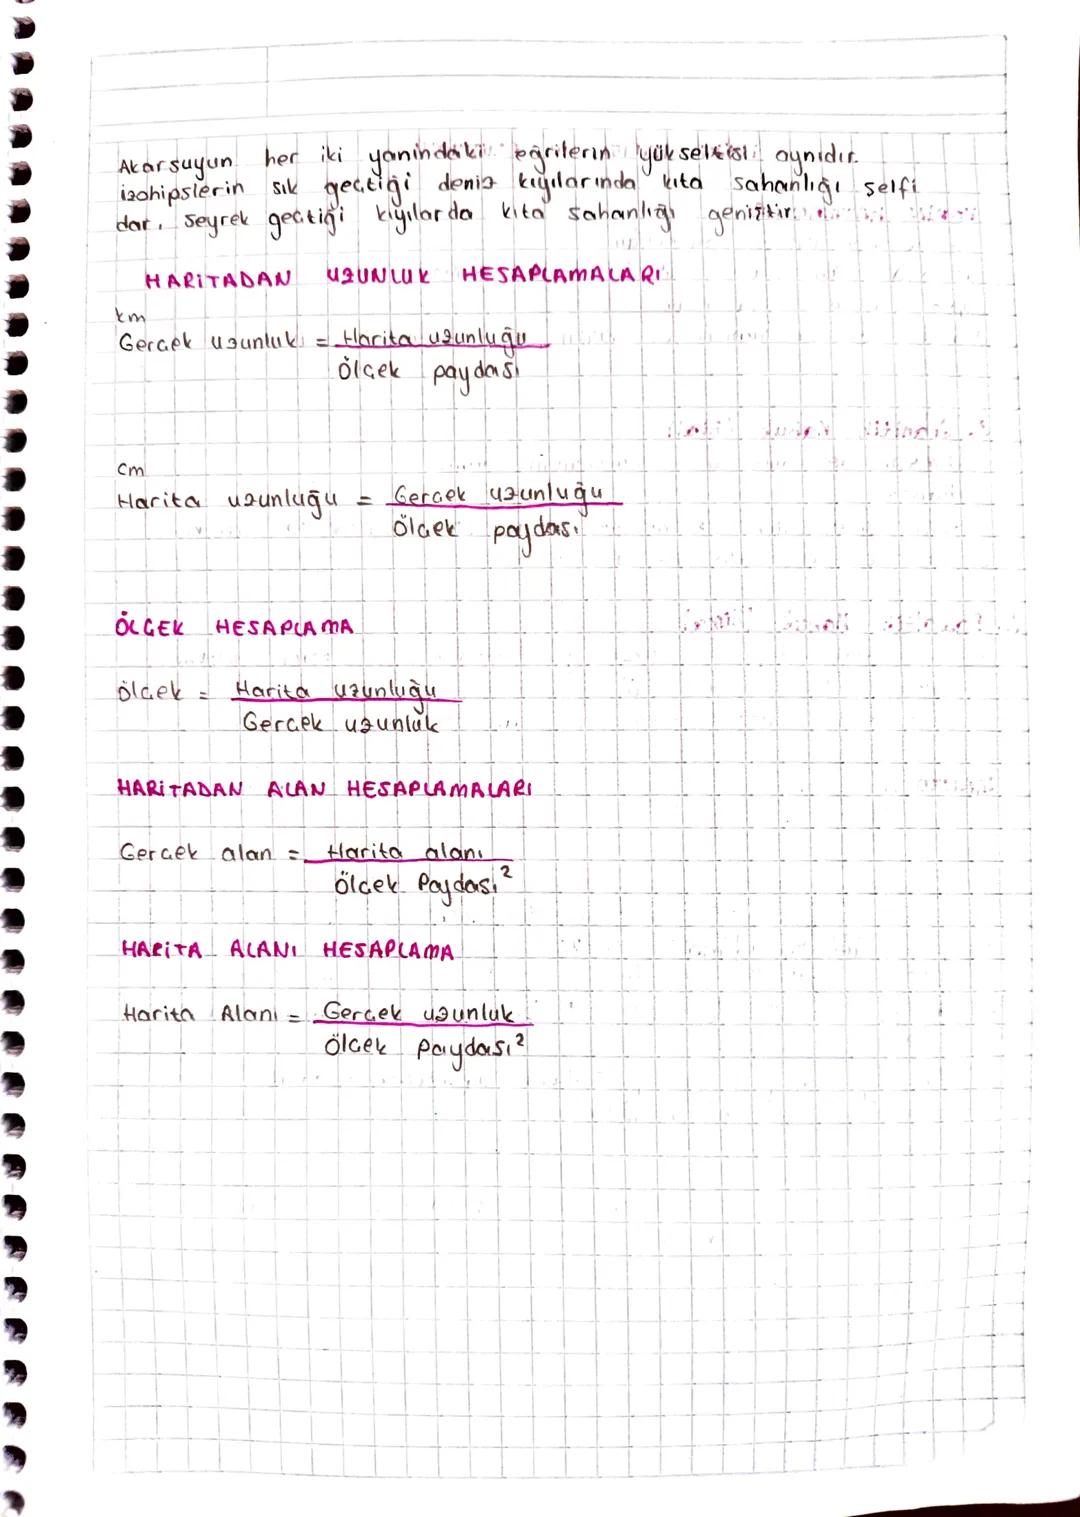 Akarsuyun her iki yanındaki eğrilerin yükseltisi aynıdır.
izohipslerin sık geçtiği deniz kıyılarında kıta sahanlığı şelfi
dar, seyrek geçtiği kıyılarda kıta sahanlığı geniştir.
HARİTADAN UZUNLUK HESAPLAMALARI
km
Gerçek uzunluk = Harita uzunluğu
Ölçek paydası
cm
Harita uzunluğu = Gerçek uzunluğu
Ölçek paydası
ÖLÇEK HESAPLAMA
ölçek = Harita uzunluğu
Gerçek uzunluk
HARİTADAN ALAN HESAPLAMALARI
Gerçek alan = Harita alanı
Ölçek Paydası²
HARİTA ALANI HESAPLAMA
Harita Alanı = Gerçek uzunluk
Ölçek paydası²